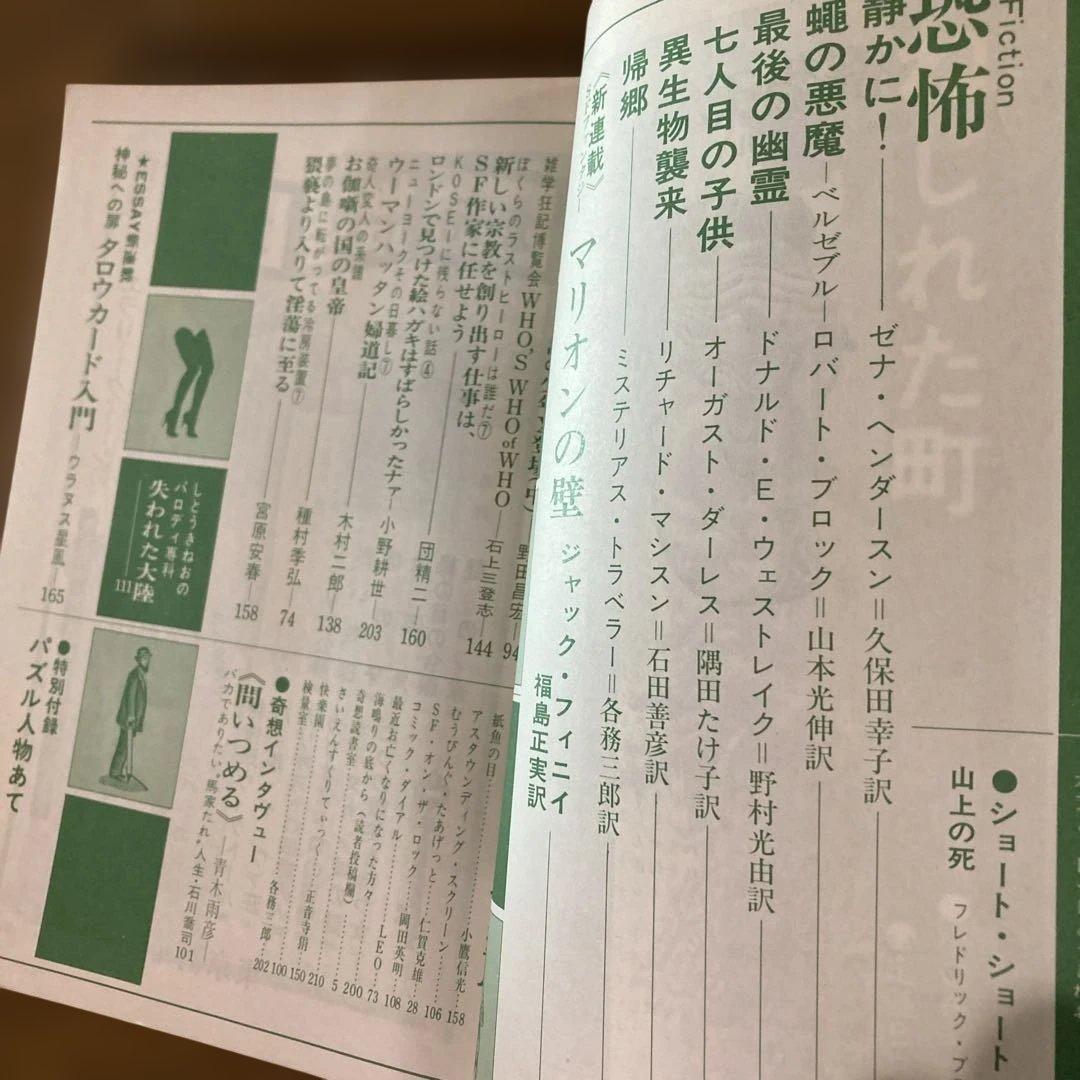 Fiction
恐怖
しれた町
静かに!――ゼナ・ヘンダースン=久保田幸子訳
蠅の悪魔―ベルゼブル―ロバート・ブロック=山本光伸訳
最後の幽霊――ドナルド・E・ウェストレイク=野村光由訳
七人目の子供――オーガスト・ダーレス=隅田たけ子訳
異生物襲来――リチャード・マシスン=石田善彦訳
帰郷――ミステリアス・トラベラー=各務三郎訳
《新連載》
マリオンの壁 ジャック・フィニイ
福島正実訳
●ショート・ショート
山上の死
フレドリック・ブ
野田昌宏―94
雑学狂記博覧会 WHO'S WHO of WHO――石上三登志―144
ぼくらのラストヒーローは誰だ⑦
新しい宗教を創り出す仕事は、
SF作家に任せよう――団精二―160
KOSEIに残らない話④
ロンドンで見つけた絵ハガキはすばらしかったナァ―小野耕世―203
ニューヨークその日暮し⑦
ウーマンハッタン婦道記――木村二郎―138
奇人変人の系譜
お伽噺の国の皇帝――種村季弘―74
夢の島に転がってる冷房装置⑦
猥褻より入りて淫蕩に至る――宮原安春―158
★ESSAY新連載
神秘への扉 タロウカード入門――ウラヌス星風―165
しとうきねおの
パロディ専科
失われた大陸
111
紙魚の目………小鷹信光…158
アスタウンディング・スクリーン………106
むうびんぐ・たあげっと………仁賀克雄…28
SF・オン・ザ・ロック………岡田英明…108
コミック・ダイアル………LEO…73
最近お亡くなりになった方々………200
海鳴りの底から（読者投稿欄）………5
奇想読書室………210
さいえんすくりてぃっく………正音寺捐…150
快楽園………100
検量室………各務三郎…202
●奇想インタヴュー
《問いつめる》――青木雨彦―
バカでありたい“馬家たれ”人生・石川喬司 101
●特別付録
パズル人物あて